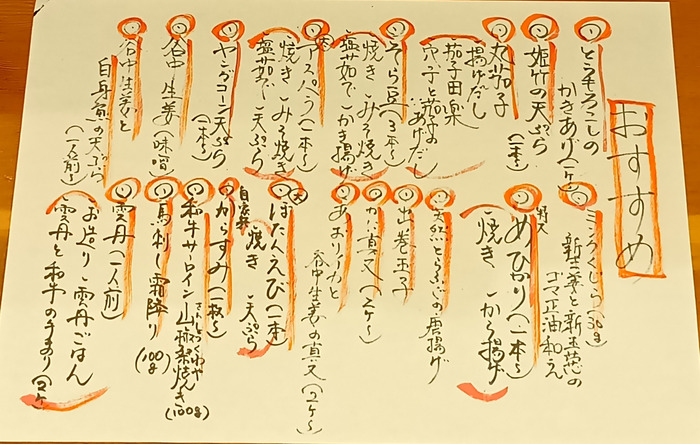 おすすめ
とうもろこしの
かきあげ(1ヶ)
姫竹の天ぷら
(1本)
丸茄子
揚げだし
茄子田楽
穴子と茄子の
あげだし
そら豆(3本〜)
焼き こみそ焼き
塩茹で こかき揚げ
大アスペラ(一本〜)
焼き こみそ焼き
塩茹で こ天ぷら
ヤングコーン天ぷら
(1本〜)
谷中生姜(味噌)
谷中生姜と
白身魚の天ぷら
(一人前〜)
ミンクくじら(30g)
新生姜と新玉葱の
ゴマ正油和え
特大
めひかり(一本〜)
焼き から揚げ
天然とらふぐの唐揚げ
出し巻玉子
かに真又(2ヶ〜)
あおりイカと
谷中生姜の真又(2ヶ〜)
大ぼたんえび(一本)
焼き 天ぷら
自家製
からすみ(一枚〜)
和牛サーロイン山椒焼き
(100g)
馬刺し霜降り
(100g)
雲丹(一人前)
お造り 雲丹ごはん
雲丹と和牛の手まり(2ヶ)